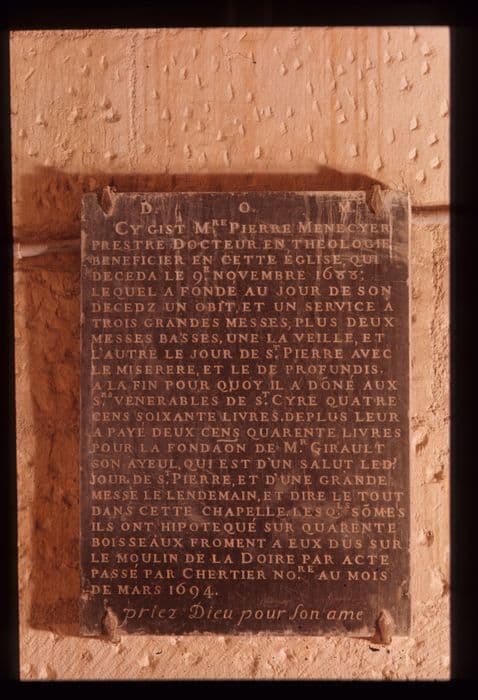 D. O. M
CY GIST M.RE PIERRE MENECYER
PRESTRE DOCTEUR EN THEOLOGIE
BENEFICIER EN CETTE EGLISE, QUI
DECEDA LE 9.E NOVEMBRE 1688:
LEQUEL A FONDE AU JOUR DE SON
DECEDZ UN OBIT, ET UN SERVICE A
TROIS GRANDES MESSES, PLUS DEUX
MESSES BASSES, UNE LA VEILLE, ET
L'AUTRE LE JOUR DE S.T PIERRE AVEC
LE MISERERE, ET LE DE PROFUNDIS.
A LA FIN POUR QUOY IL A DÕNE AUX
S.RS VENERABLES DE S.T CYRE QUATRE
CENS SOIXANTE LIVRES. DEPLUS LEUR
A PAYÉ DEUX CENS QUARENTE LIVRES
POUR LA FONDAÕN DE M.R GIRAULT
SON AYEUL, QUI EST D'UN SALUT LED.T
JOUR DE S.T PIERRE, ET D'UNE GRANDE
MESSE LE LENDEMAIN, ET DIRE LE TOUT
DANS CETTE CHAPELLE, LESQ.ES SÕMES
ILS ONT HIPOTEQUÉ SUR QUARENTE
BOISSEAUX FROMENT A EUX DUS SUR
LE MOULIN DE LA DOIRE PAR ACTE
PASSÉ PAR CHERTIER NO.RE AU MOIS
DE MARS 1694.
priez Dieu pour son ame